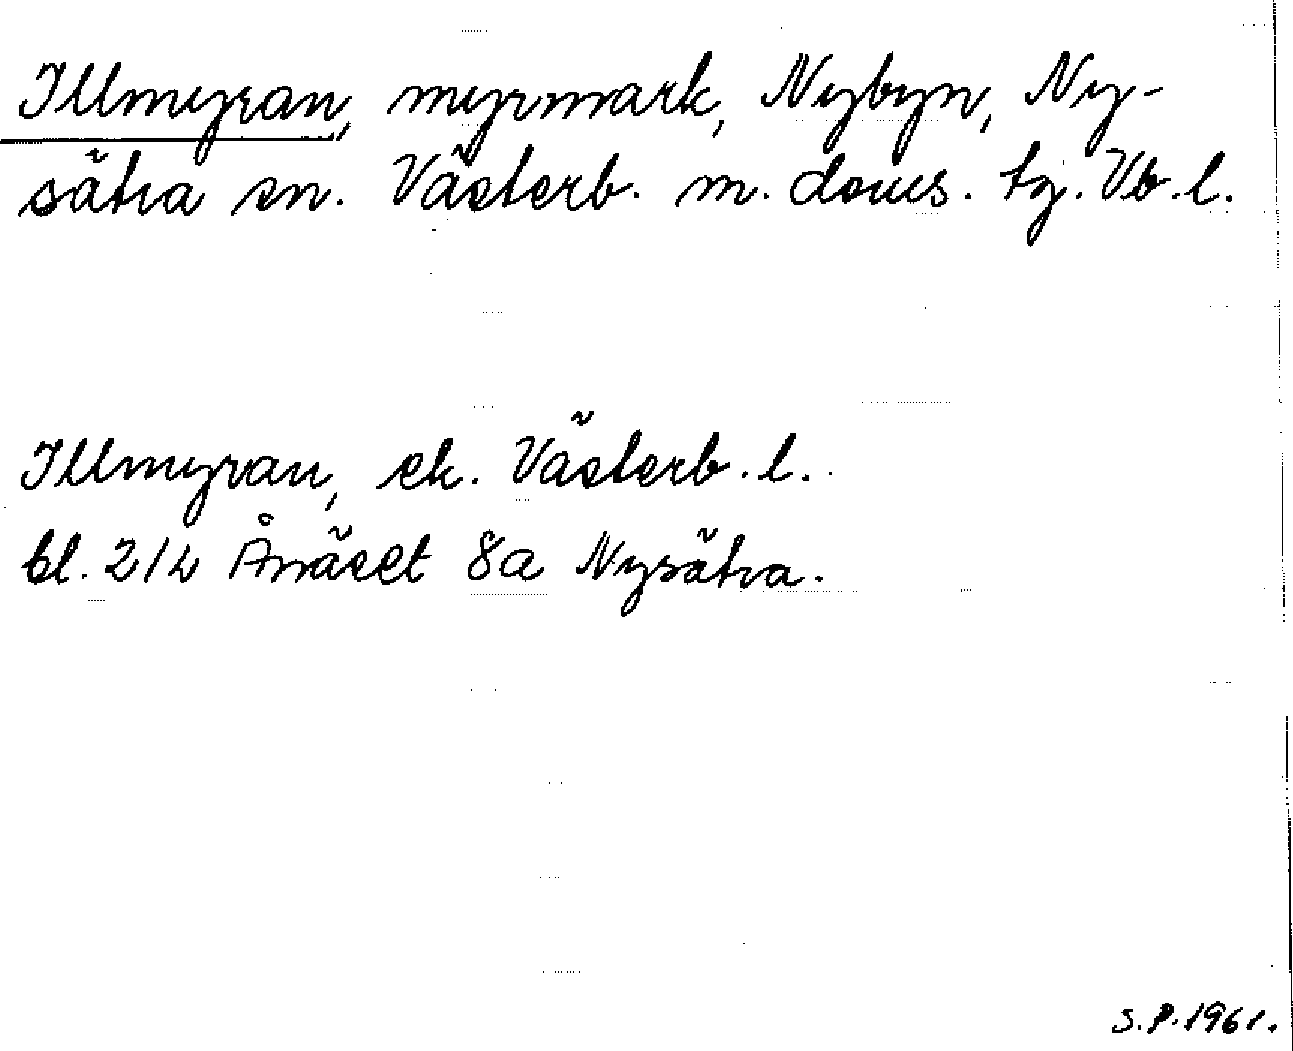 Illmyran, myrmark, Nybyn, Ny-
sätra sn. Västerb. m. doms. tg. Vb. l.
Illmyran, ek. Västerb. l.
bl. 212 Ånäset 8a Nysätra.
S.P. 1961.